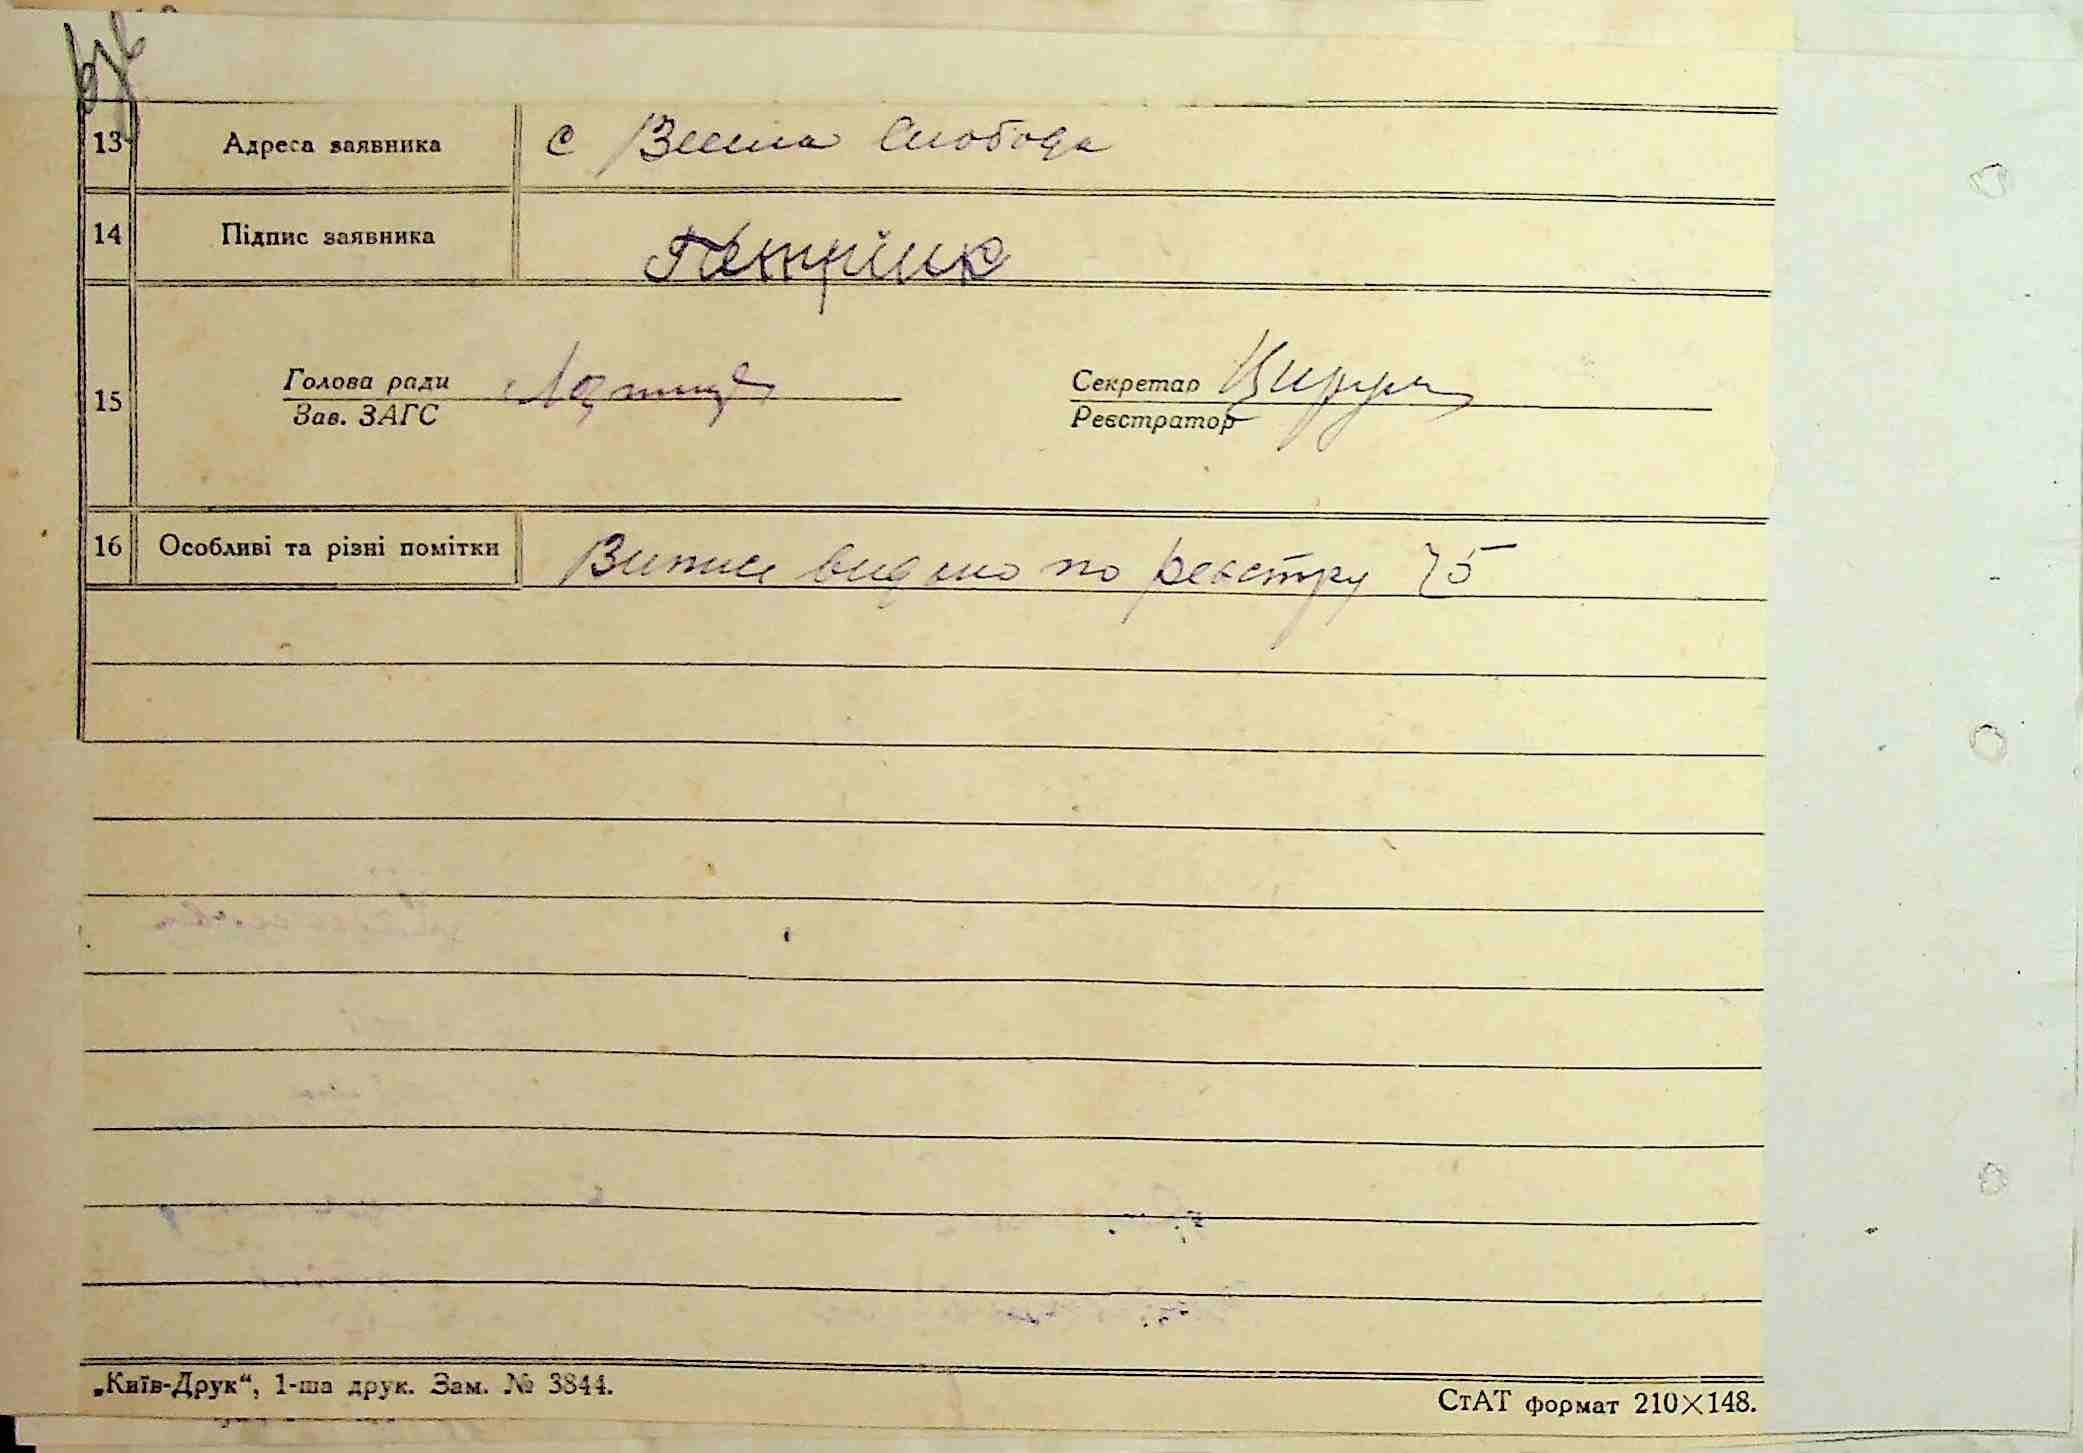 13 Адреса заявника с Весела Слобода
14 Підпис заявника Петрик
15 Голова ради Секретар
Зав. ЗАГС Реєстратор
16 Особливі та різні помітки Випис видано по реєстру 75
„Київ-Друк“, 1-ша друк. Зам. № 3844. СтАТ формат 210×148.